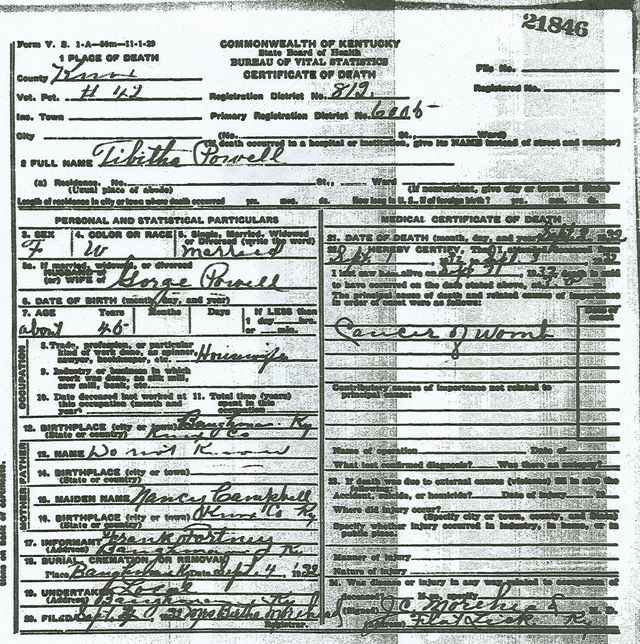 21846
Form V. S. 1-A—50m—11-1-29
COMMONWEALTH OF KENTUCKY
State Board of Health
BUREAU OF VITAL STATISTICS
CERTIFICATE OF DEATH
1 PLACE OF DEATH
County Knox
File No.
Registered No.
Vot. Pct. # 42
Registration District No. 812
Inc. Town
Primary Registration District No.
City
(No. St., Ward)
(If death occurred in a hospital or institution, give its NAME instead of street and number)
2 FULL NAME Tibitha Powell
(a) Residence. No. St., Ward
(Usual place of abode) (If nonresident, give city or town and State)
Length of residence in city or town where death occurred yrs. mos. ds. How long in U. S., if of foreign birth? yrs. mos. ds.
PERSONAL AND STATISTICAL PARTICULARS
3. SEX F
4. COLOR OR RACE W
5. Single, Married, Widowed or Divorced (write the word) Married
5a. If married, widowed, or divorced
HUSBAND of
(or) WIFE of Gorge Powell
6. DATE OF BIRTH (month, day, and year)
7. AGE Years Months Days If LESS than
about 45 1 day hrs.
or min.
OCCUPATION
8. Trade, profession, or particular
kind of work done, as spinner,
sawyer, bookkeeper, etc. Housewife
9. Industry or business in which
work was done, as silk mill,
saw mill, bank, etc.
10. Date deceased last worked at
this occupation (month and
year)
11. Total time (years)
spent in this
occupation
12. BIRTHPLACE (city or town) Baughman Ky
(State or country) Knox Co
FATHER
13. NAME Do not Know
14. BIRTHPLACE (city or town)
(State or country)
MOTHER
15. MAIDEN NAME Nancy Campbell
16. BIRTHPLACE (city or town) Co Ky
(State or country)
17. INFORMANT Frank
(Address) Baughman Ky
18. BURIAL, CREMATION, OR REMOVAL
Place Date Sept. 4, 1932
19. UNDERTAKER Local
(Address) Ky
20. FILED Sept 1932 Mrs Bertha
Registrar.
MEDICAL CERTIFICATE OF DEATH
21. DATE OF DEATH (month, day, and year) Sept
22. I HEREBY CERTIFY, That I attended deceased from
Sept 1 Sept 3
I last saw alive on death is said
to have occurred on the date stated above, at
The principal cause of death and related causes of importance
in order of onset were as follows:
Date of
onset
Cancer of Womb
Contributory causes of importance not related to
principal cause:
Name of operation Date of
What test confirmed diagnosis? Was there an autopsy?
23. If death was due to external causes (violence) fill in also the
Accident, suicide, or homicide? Date of injury
Where did injury occur?
(Specify city or town, county, and State)
Specify whether injury occurred in industry, in home, or in
public place.
Manner of injury
Nature of injury
24. Was disease or injury in any way related to occupation of
deceased? If so, specify
(Signed) J.C.
(Address) Flat Lick Ky